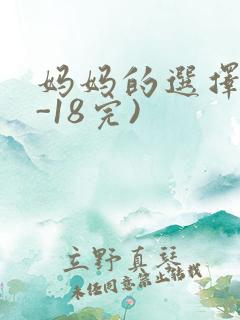 妈妈的選擇
-18完)
立野真琴
未经同意禁止转载